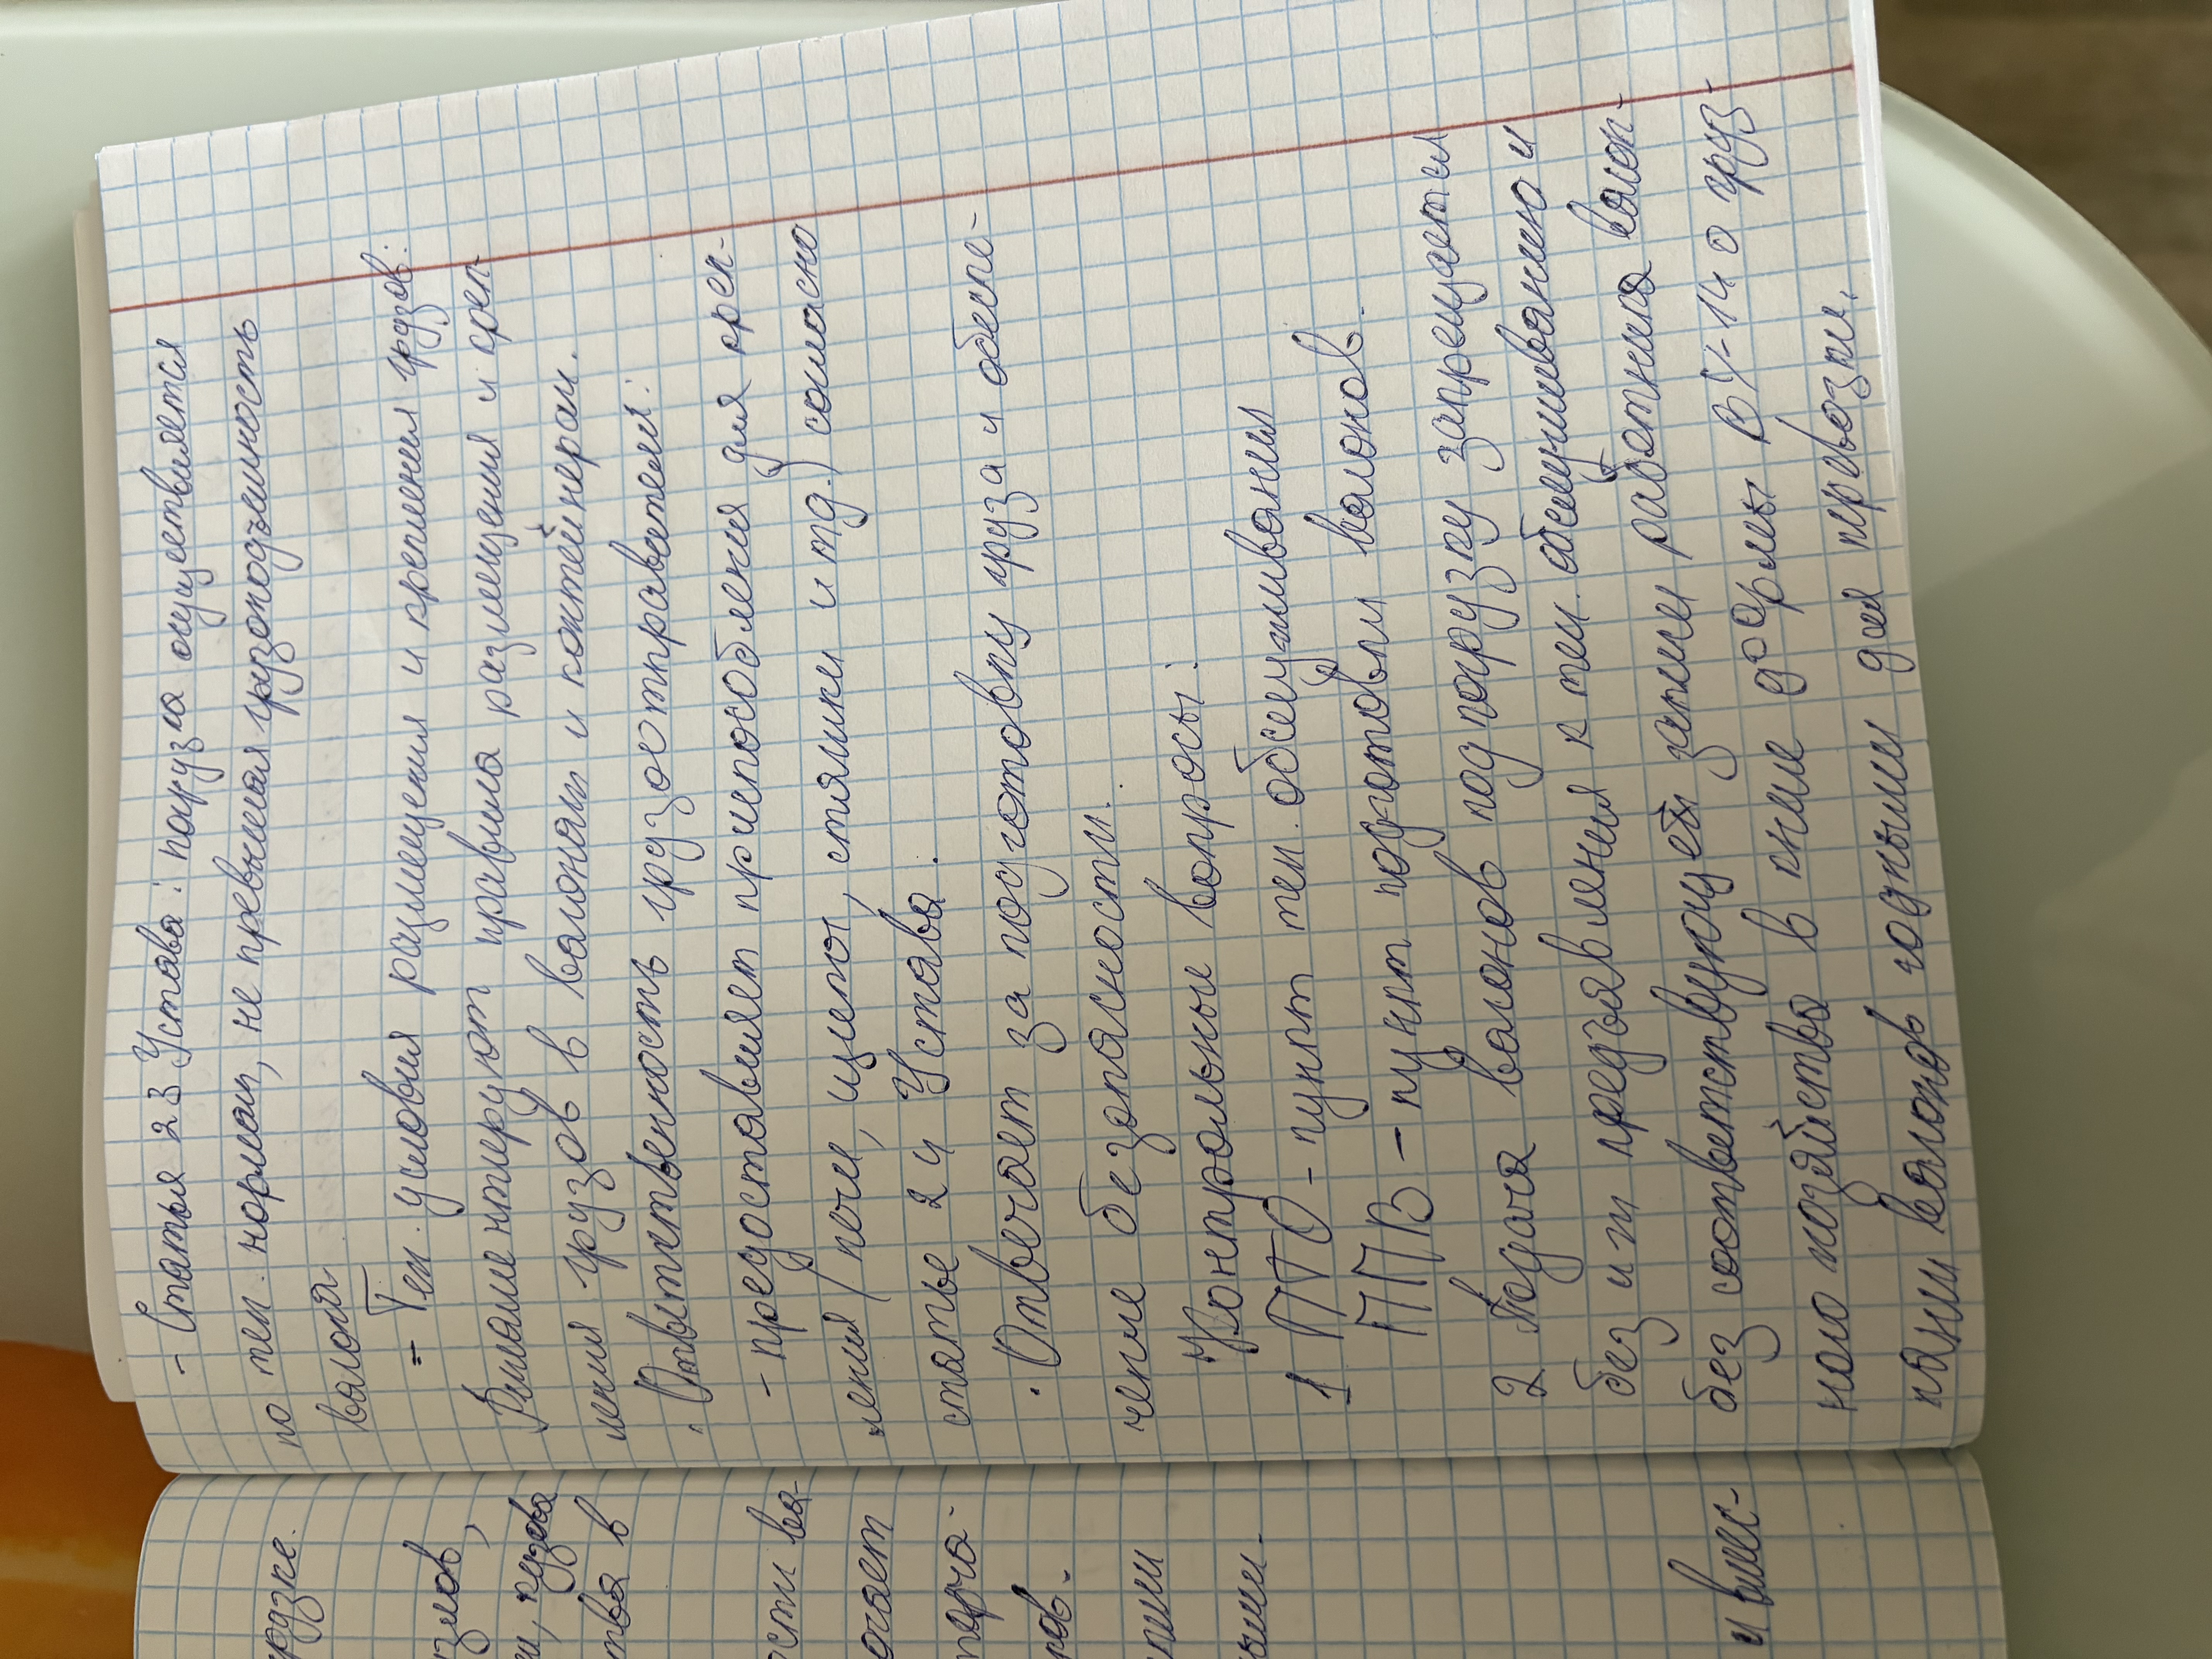 - Статья 23 Устава: погрузка осуществляется
по тех. нормам, не превышая грузоподъемность
вагона
= Тех. условия размещения и крепления грузов:
Регламентируют правила размещения и креп-
ления грузов в вагонах и контейнерах.
. Ответственность грузоотправителей:
- предоставляет приспособления для креп-
ления (печи, щиты, стяжки и тд.) согласно
статье 24 Устава.
. Отвечает за подготовку груза и обеспе-
чение безопасности.
Контрольные вопросы:
1 ПТО - пункт тех. обслуживания
ППВ - пункт подготовки вагонов.
2. Подача вагонов под погрузку запрещается
без их предъявления к тех. обслуживанию и
без соответствующей записи работника вагон-
ного хозяйства в книге формы ВУ-14 о приз-
нании вагонов годными для перевозки.
грузке.
сти ва-
очает
ров.
и вмес-